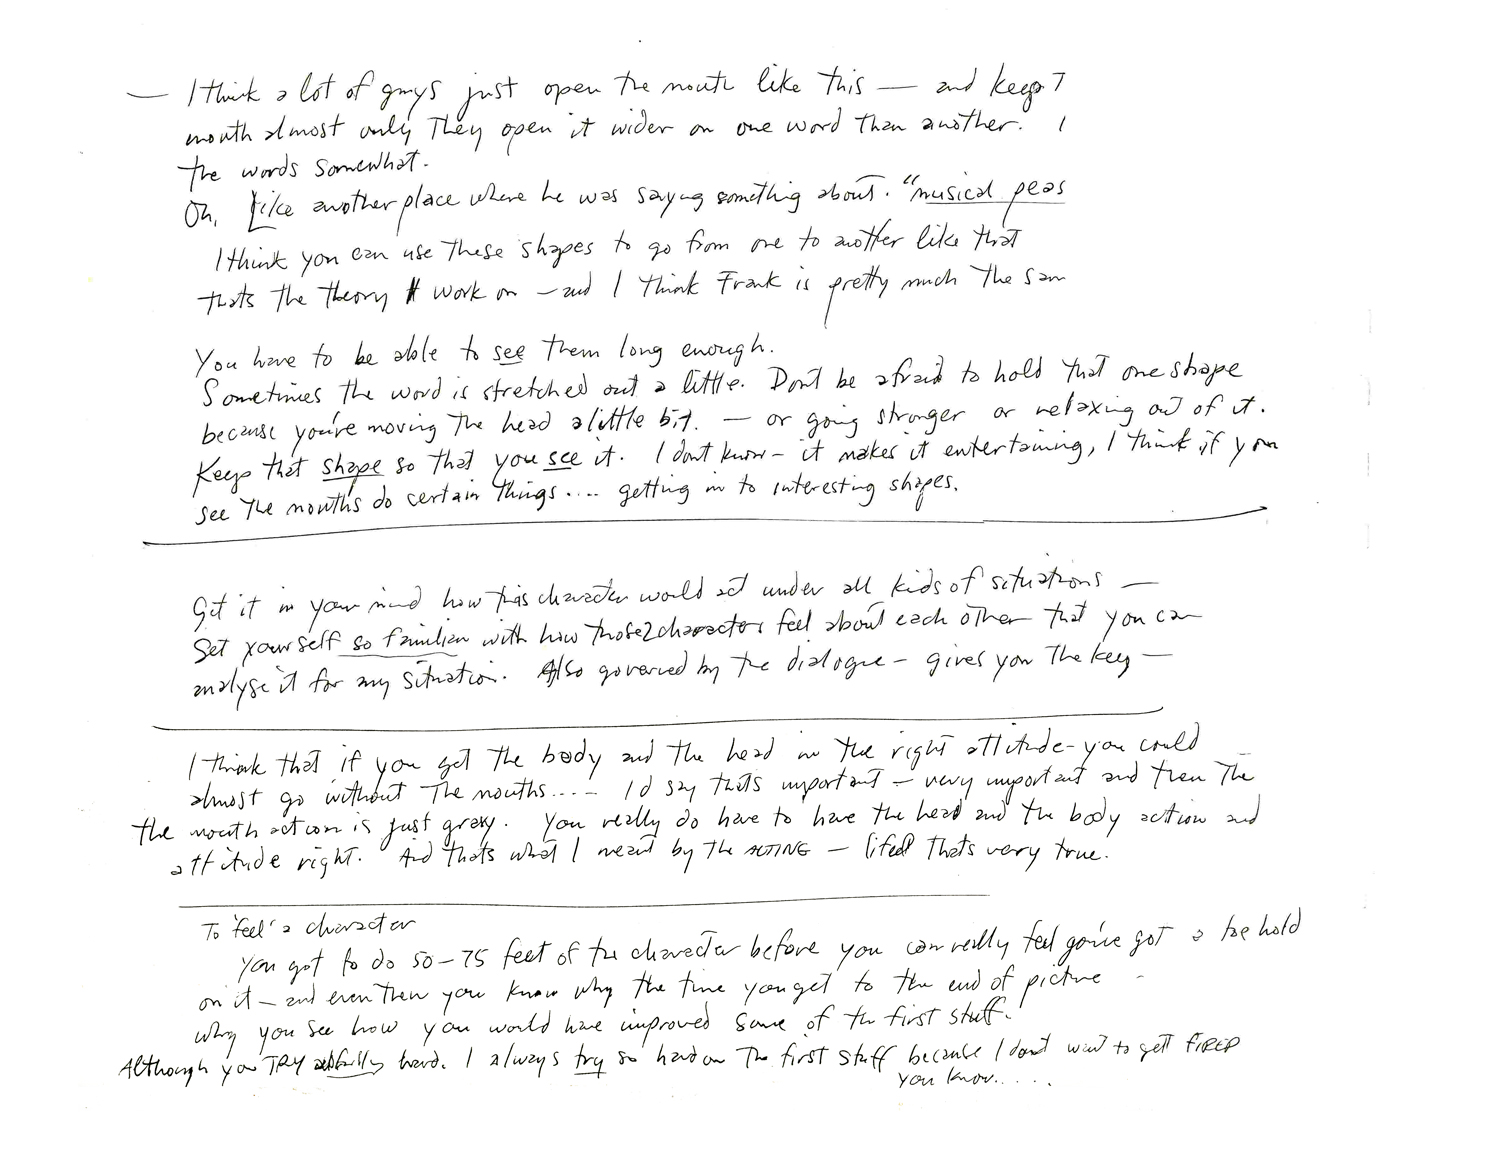 — I think a lot of guys just open the mouth like this — and keep T
mouth almost only They open it wider on one word than another. I
the words somewhat.
Oh, Like another place where he was saying something about. "musical peas
I think you can use these shapes to go from one to another like that
thats the theory I work on — and I think Frank is pretty much the sam
You have to be able to see them long enough.
Sometimes the word is stretched out a little. Don't be afraid to hold that one shape
because you're moving the head a little bit. — or going stronger or relaxing out of it.
Keep that shape so that you see it. I dont know – it makes it entertaining, I think if you
see the mouths do certain things.... getting in to interesting shapes.
Get it in your mind how this character would act under all kids of situations —
Set yourself so familiar with how those 2 characters feel about each other that you can
analyse it for any situation. Also governed by the dialogue – gives you the key —
I think that if you get the body and the head in the right attitude – you could
almost go without the mouths..... I'd say thats important – very important and then the
the mouth action is just gravy. You really do have to have the head and the body action and
attitude right. And thats what I meant by the ACTING — I feel thats very true.
To 'feel' a character
You got to do 50–75 feet of the character before you can really feel you've got a toe hold
on it – and even then you know why the time you get to the end of picture -
why you see how you would have improved some of the first stuff.
Although you TRY awfully hard. I always try so hard on the first stuff because I don't want to get FIRED
you know.....